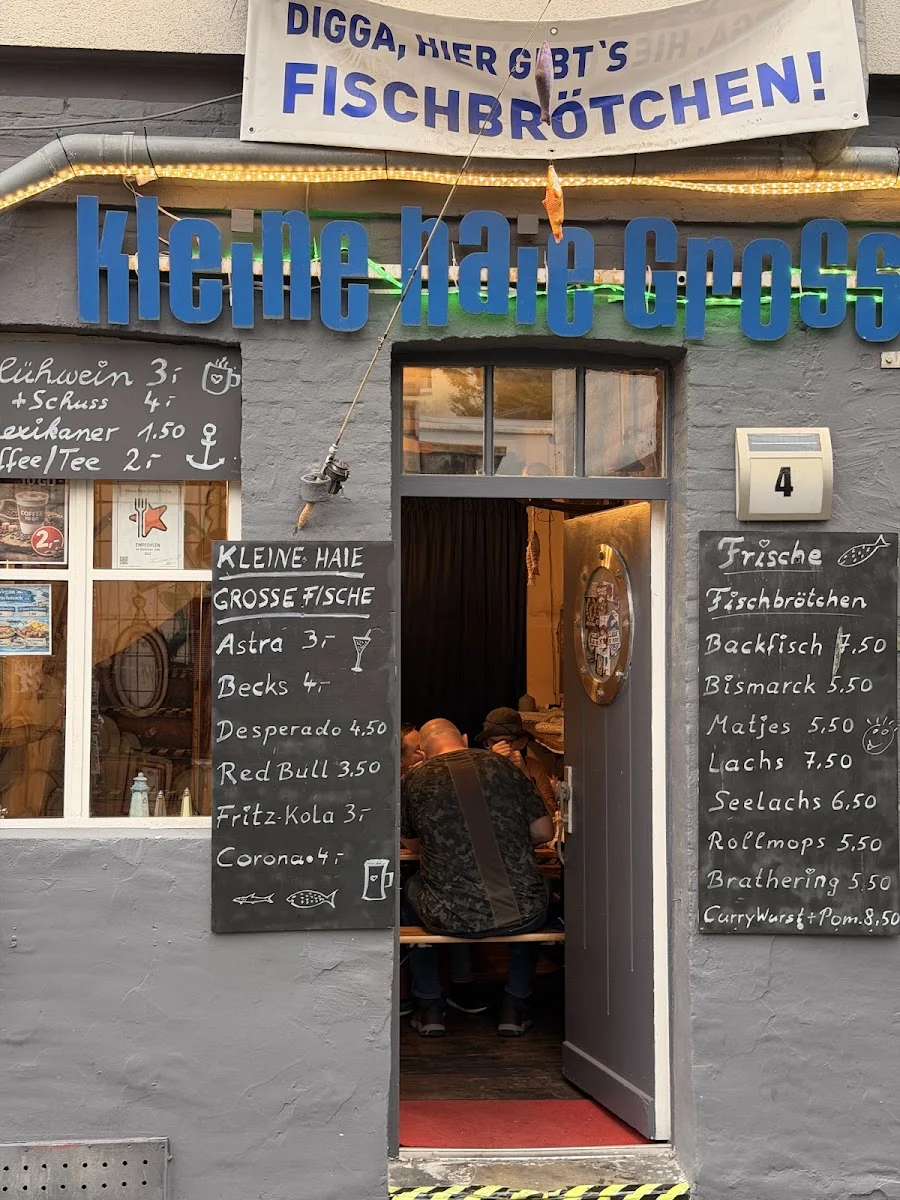 DIGGA, HIER GIBT'S
FISCHBRÖTCHEN!
kleine haie Gross
lühwein 3,-
+ Schuss 4,-
exikaner 1.50
ffee/Tee 2,-
COFFEE
2,-
EMPFOHLEN
KLEINE HAIE
GROSSE FISCHE
Astra 3,-
Becks 4,-
Desperado 4.50
Red Bull 3,50
Fritz-Kola 3,-
Corona 4,-
4
Frische
Fischbrötchen
Backfisch 7,50
Bismarck 5,50
Matjes 5,50
Lachs 7,50
Seelachs 6,50
Rollmops 5,50
Brathering 5,50
CurryWurst + Pom. 8,50